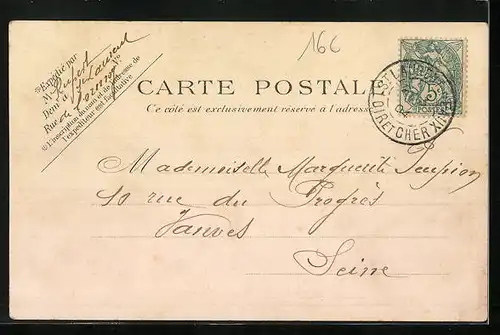 166
Expédié par
M.
Demt à St Laurent
Rue de
L'inscription du nom et de l'adresse de
l'expéditeur est facultative
CARTE POSTALE
Ce côté est exclusivement réservé à l'adresse
ST LAURENT
LOIR ET CHER
5c
Mademoiselle Marguerite
10 rue du Progrès
Vanves
Seine